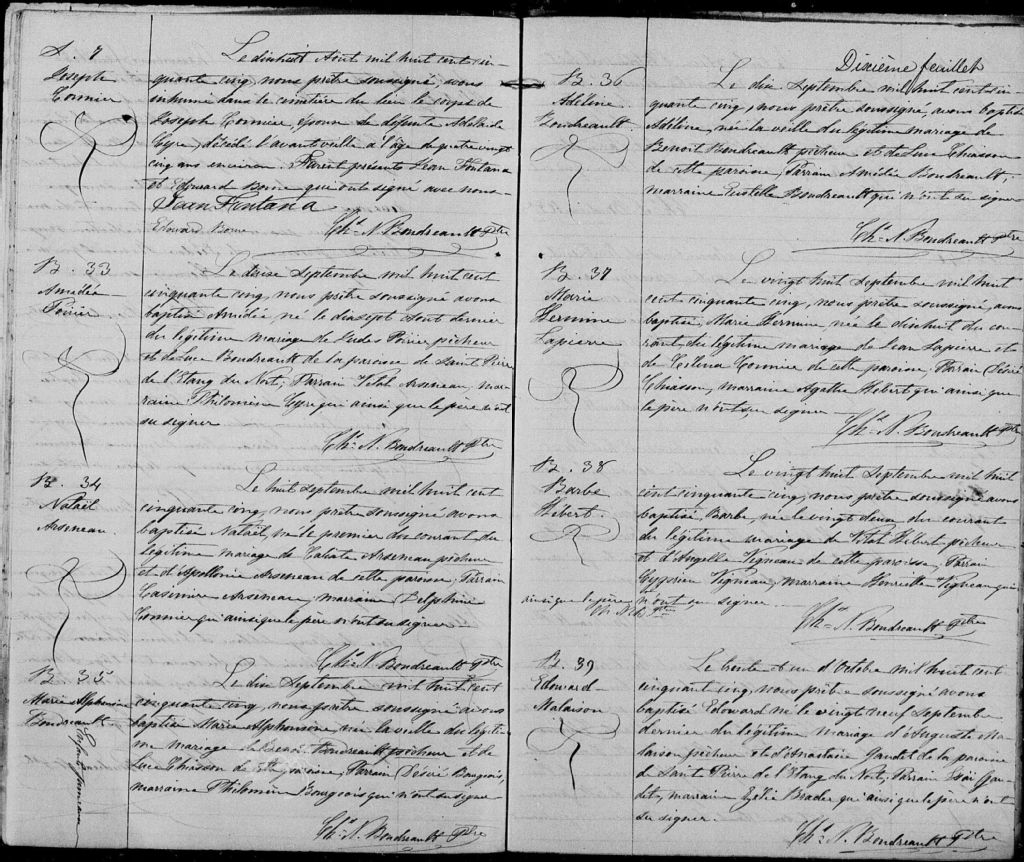 S. 7
Joseph
Cormier
Le dixhuit Aout mil huit cent cin-
quante cinq, nous prêtre soussigné avons
inhumé dans le cimetière du lieu le corps de
Joseph Cormier, époux de défunte Adélaide
Cyre, décédé l'avant veille à l'âge de quatre vingt
cinq ans environ. Furent présents Jean Fontana
et Edouard Borne qui ont signé avec nous.
Jean Fontana
Edouard Borne
Chs. N. Boudreault Ptre
B. 33
Amédée
Poirier
Le deux Septembre mil huit cent
cinquante cinq, nous prêtre soussigné avons
baptisé Amédée né le dixsept Aout dernier
du légitime mariage de Lude Poirier pêcheur
et de Luce Boudreault de la paroisse de Saint Pierre
de l'Etang du Nort; Parrain Vital Arseneau, mar-
raine Philomène Cyre qui ainsi que le père n'ont
su signer
Chs. N. Boudreault Ptre
B. 34
Natail
Arseneau
Le huit Septembre mil huit cent
cinquante cinq, nous prêtre soussigné avons
baptisé Natail, né le premier du courant du
légitime mariage de Calixte Arseneau pêcheur
et d'Apollonie Arseneau de cette paroisse; Parrain
Casimire Arseneau, marraine Delphine
Cormier qui ainsi que le père n'ont su signer
Chs. N. Boudreault Ptre
B. 35
Marie Alphonsine
Boudreault
Enfants jumeaux
Le dix Septembre mil huit cent
cinquante cinq, nous prêtre soussigné avons
baptisé Marie Alphonsine, née la veille du légiti-
me mariage de Benoi Boudreault pêcheur et de
Luce Chiasson de cette paroisse, Parrain Désiré Bourgeois,
marraine Philomène Bourgeois qui n'ont su signer
Chs. N. Boudreault Ptre
Dixième feuillet
B. 36
Adéline
Boudreault
Le dix Septembre mil huit cent cin-
quante cinq, nous prêtre soussigné, avons baptisé
Adéline, née la veille du légitime mariage de
Benoit Boudreault pêcheur et de Luce Chiasson
de cette paroisse, Parrain Amédée Boudreault,
marraine Eustelle Boudreault qui n'ont su signer
Chs. N. Boudreault Ptre
B. 37
Marie
Hermine
Lapierre
Le vingt huit Septembre mil huit
cent cinquante cinq, nous prêtre soussigné, avons
baptisé, Marie Hermine, née le dixhuit du cou-
rant du légitime mariage de Jean Lapierre et
de Célina Cormier de cette paroisse, Parrain Désiré
Chiasson, marraine Agathe Hébert qui ainsi que
le père n'ont su signer
Chs. N. Boudreault Ptre
B. 38
Barbe
Hébert
Le vingt huit Septembre mil huit
cent cinquante cinq, nous prêtre soussigné avons
baptisé Barbe, née le vingt deux du courant
du légitime mariage de Vital Hébert pêcheur
et d'Angelle Vigneau de cette paroisse, Parrain
Cyprien Vigneau, marraine Henriette Vigneau qui
ainsi que le père n'ont su signer
Ch. N. B. Ptre
Chs. N. Boudreault Ptre
B. 39
Edouard
Malaison
Le trente et un d'Octobre mil huit cent
cinquante cinq, nous prêtre soussigné avons
baptisé Edouard né le vingt neuf Septembre
dernier du légitime mariage d'Auguste Ma-
laison pêcheur et d'Anastasie Gaudet de la paroisse
de Sainte Pierre de l'Etang du Nort; Parrain Esai Gau-
det, marraine Ezélie Brader qui ainsi que le père n'ont
su signer.
Chs. N. Boudreault Ptre